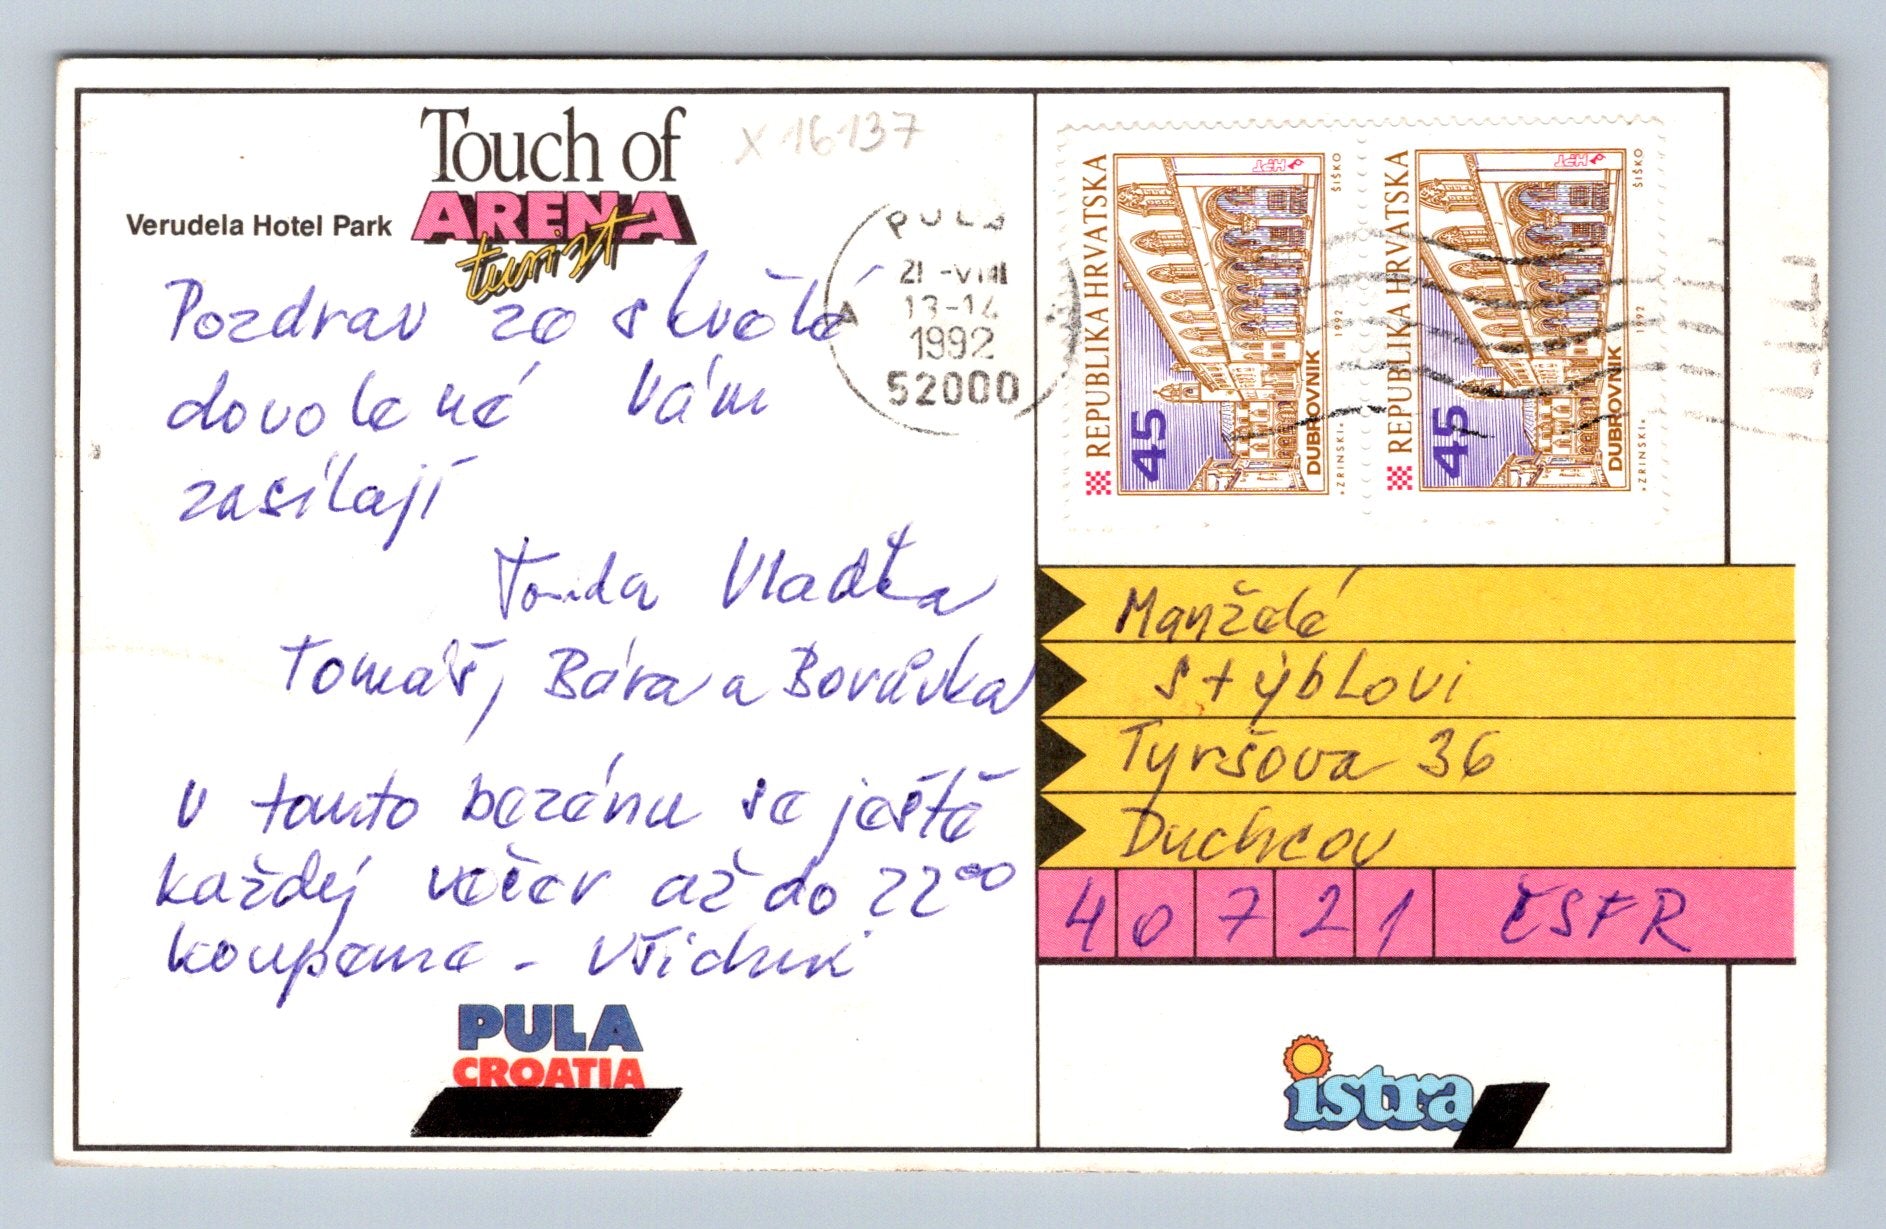 Touch of
ARENA
turist
Verudela Hotel Park
X 16137
Pozdrav ze skvělé
dovolené Vám
zasílají
Tonda Vlaďka
Tomáš, Bára a Borůvka
V tomto bazénu se ještě
každej večer až do 22⁰⁰
koupeme - všichni
PULA
CROATIA
PULA
21-VIII
13-14
1992
52000
REPUBLIKA HRVATSKA
45
DUBROVNIK
»ZRINSKI«
1992
ŠIŠKO
HPT
REPUBLIKA HRVATSKA
45
DUBROVNIK
»ZRINSKI«
1992
ŠIŠKO
HPT
Manželé
Stýblovi
Tyršova 36
Duchcov
40721 ČSFR
istra